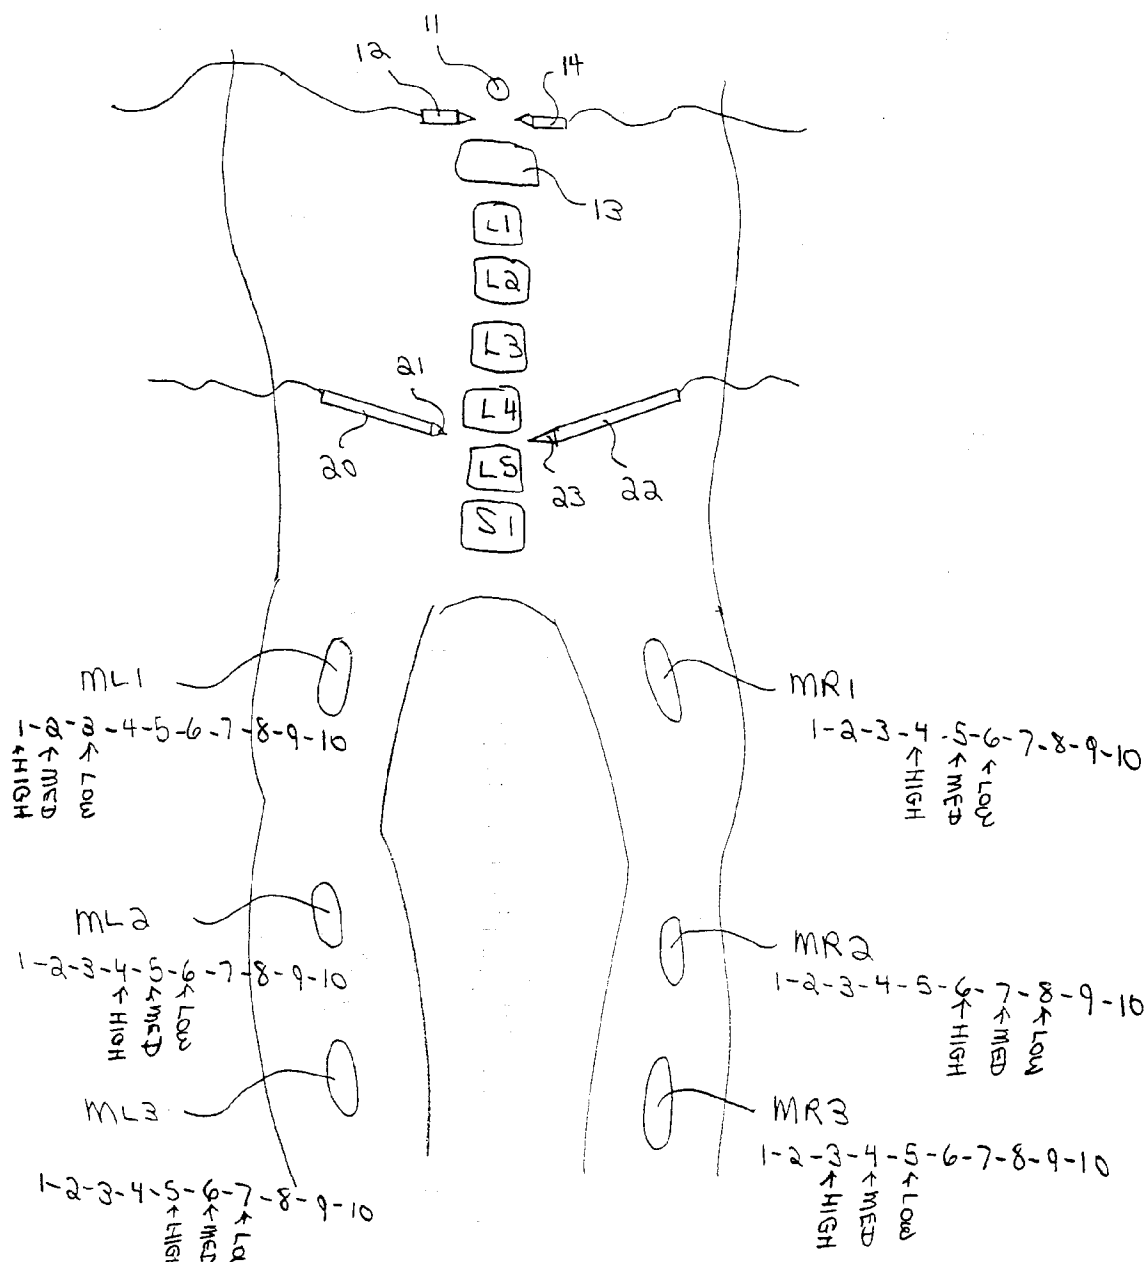 11
12
14
13
L1
L2
L3
21
L4
20
L5
23
22
S1
ML1
1-2-3-4-5-6-7-8-9-10
↑HIGH
↑MED
↑LOW
MR1
1-2-3-4-5-6-7-8-9-10
↑HIGH
↑MED
↑LOW
ML2
1-2-3-4-5-6-7-8-9-10
↑HIGH
↑MED
↑LOW
MR2
1-2-3-4-5-6-7-8-9-10
↑HIGH
↑MED
↑LOW
ML3
1-2-3-4-5-6-7-8-9-10
↑HIGH
↑MED
↑LO
MR3
1-2-3-4-5-6-7-8-9-10
↑HIGH
↑MED
↑LOW